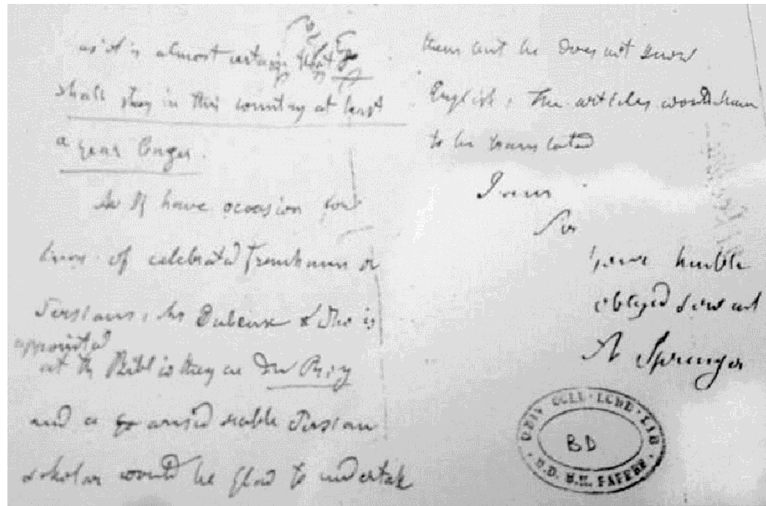 as it is almost certain that I
shall stay in this country at least
a year longer.
As I have occasion for
lives of celebrated Frenchmen or
Persians, Mr Dubeux who is
appointed
at the Bibliotheque du Roy
and a considerable Persian
scholar would be glad to undertake
them but he does not know
English, The articles would have
to be translated
I am
Sir
Your humble
obliged servant
A Sprenger
UNIV COLL LOND LIB
BD
S.D.U.K. PAPERS